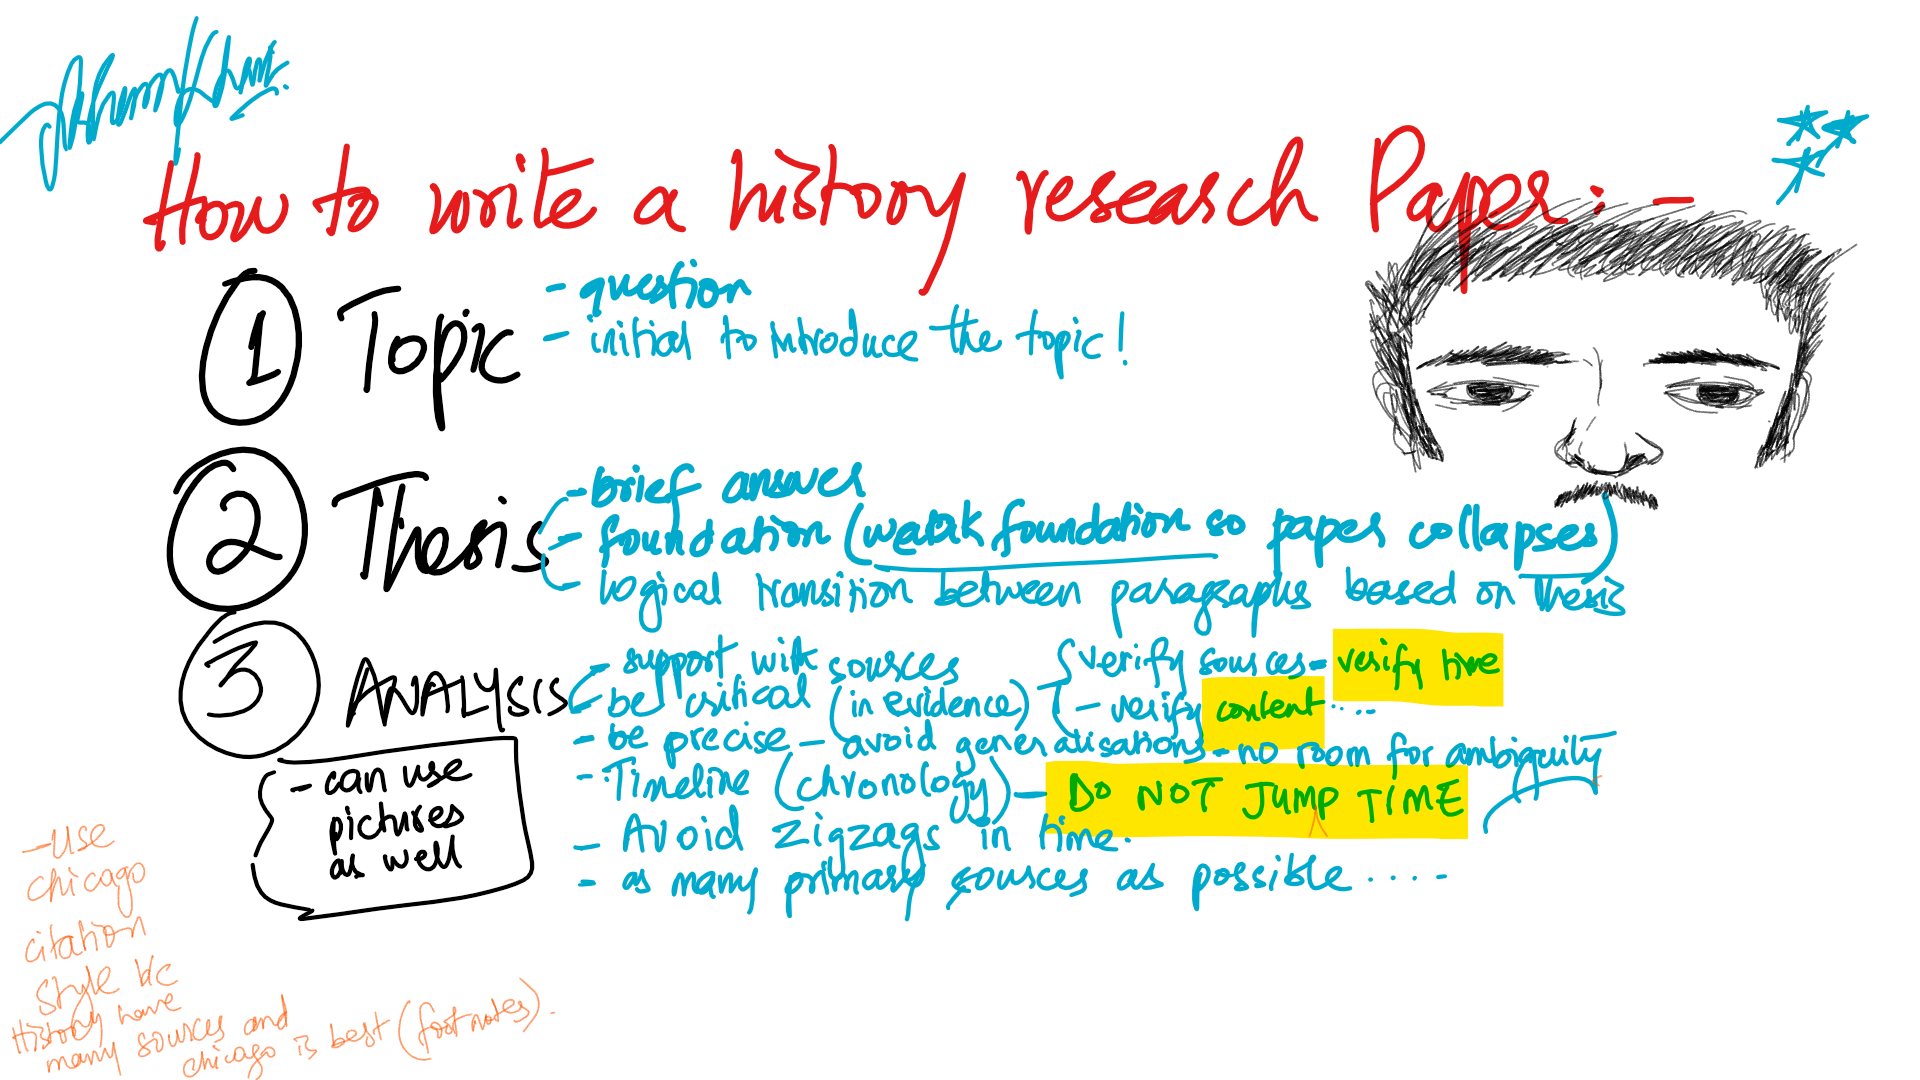 How to write a history research Paper:-
1 Topic
- question
- initial to introduce the topic!
2 Thesis
- brief answer
- foundation (weak foundation so paper collapses)
- logical transition between paragraphs based on Thesis
3 ANALYSIS
- support with sources
- be critical (in evidence) - verify sources - verify time
- verify content....
- be precise - avoid generalisations - no room for ambiguity
- Timeline (chronology) - DO NOT JUMP TIME
- Avoid zigzags in time.
- as many primary sources as possible .... -
- can use
pictures
as well
- Use
chicago
citation
style b/c
History have
many sources and
chicago is best (footnotes).